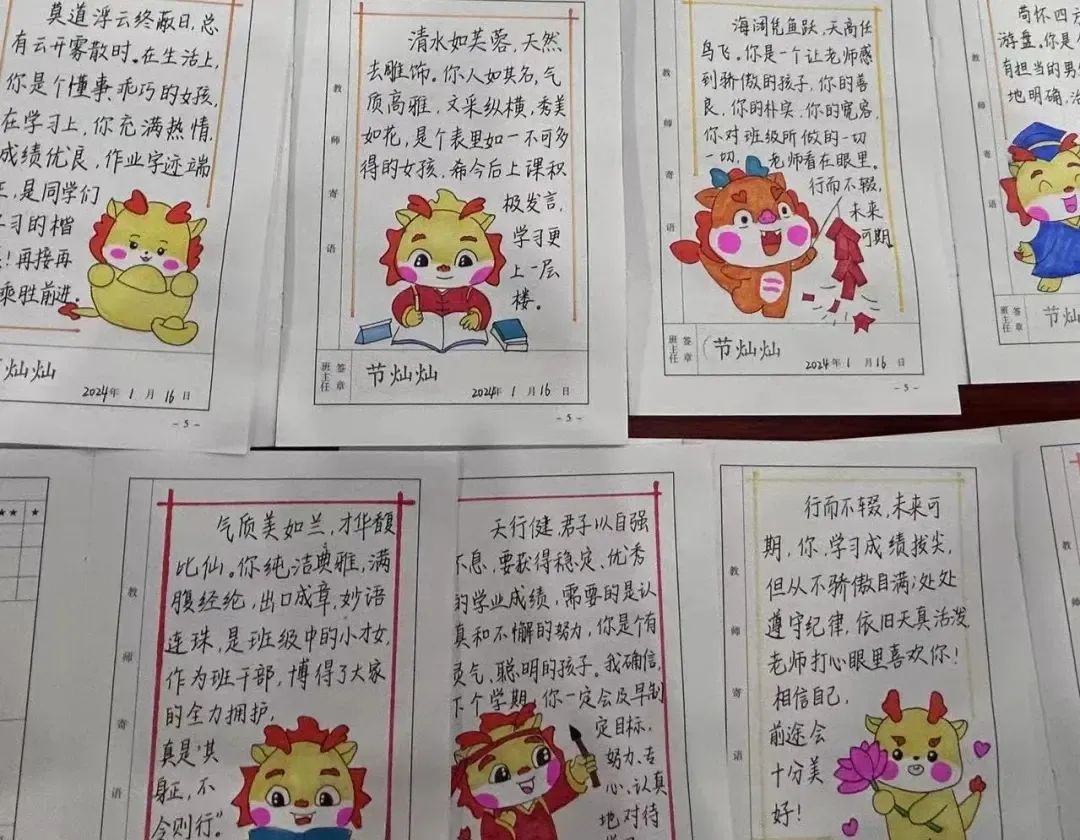 莫道浮云终蔽日,总
有云开雾散时。在生活上,
你是个懂事、乖巧的女孩,
在学习上,你充满热情,
成绩优良,作业字迹端
正,是同学们
学习的楷
再接再
乘胜前进。
灿灿
2024年1月16日
- 5 -
教师寄语
清水如芙蓉,天然
去雕饰。你人如其名,气
质高雅,文采纵横,秀美
如花,是个表里如一不可多
得的女孩,希今后上课积
极发言,
学习更
上一层
楼。
班主任签章
节灿灿
2024年1月16日
- 5 -
教师寄语
海阔凭鱼跃,天高任
鸟飞。你是一个让老师感
到骄傲的孩子,你的善
良,你的朴实,你的宽容,
你对班级所做的一切
一切,老师看在眼里。
行而不辍,
未来
可期
班主任签章
节灿灿
2024年1月16日
- 5 -
教师寄语
苟怀四
游盘。你是
有担当的男
地明确,
班主任签章
节灿
★★ ★
教师寄语
气质美如兰,才华馥
比仙。你纯洁典雅,满
腹经纶,出口成章,妙语
连珠,是班级中的小才女,
作为班干部,博得了大家
的全力拥护,
真是“其
身正,不
令则行”
天行健,君子以自强
不息,要获得稳定、优秀
的学业成绩,需要的是认
真和不懈的努力,你是个有
灵气、聪明的孩子。我确信,
下个学期,你一定会及早制
定目标,
努力、专
心、认真
地对待
教师寄语
行而不辍,未来可
期,你,学习成绩拔尖,
但从不骄傲自满;处处
遵守纪律,依旧天真活泼,
老师打心眼里喜欢你!
相信自己,
前途会
十分美
好!
教师寄语